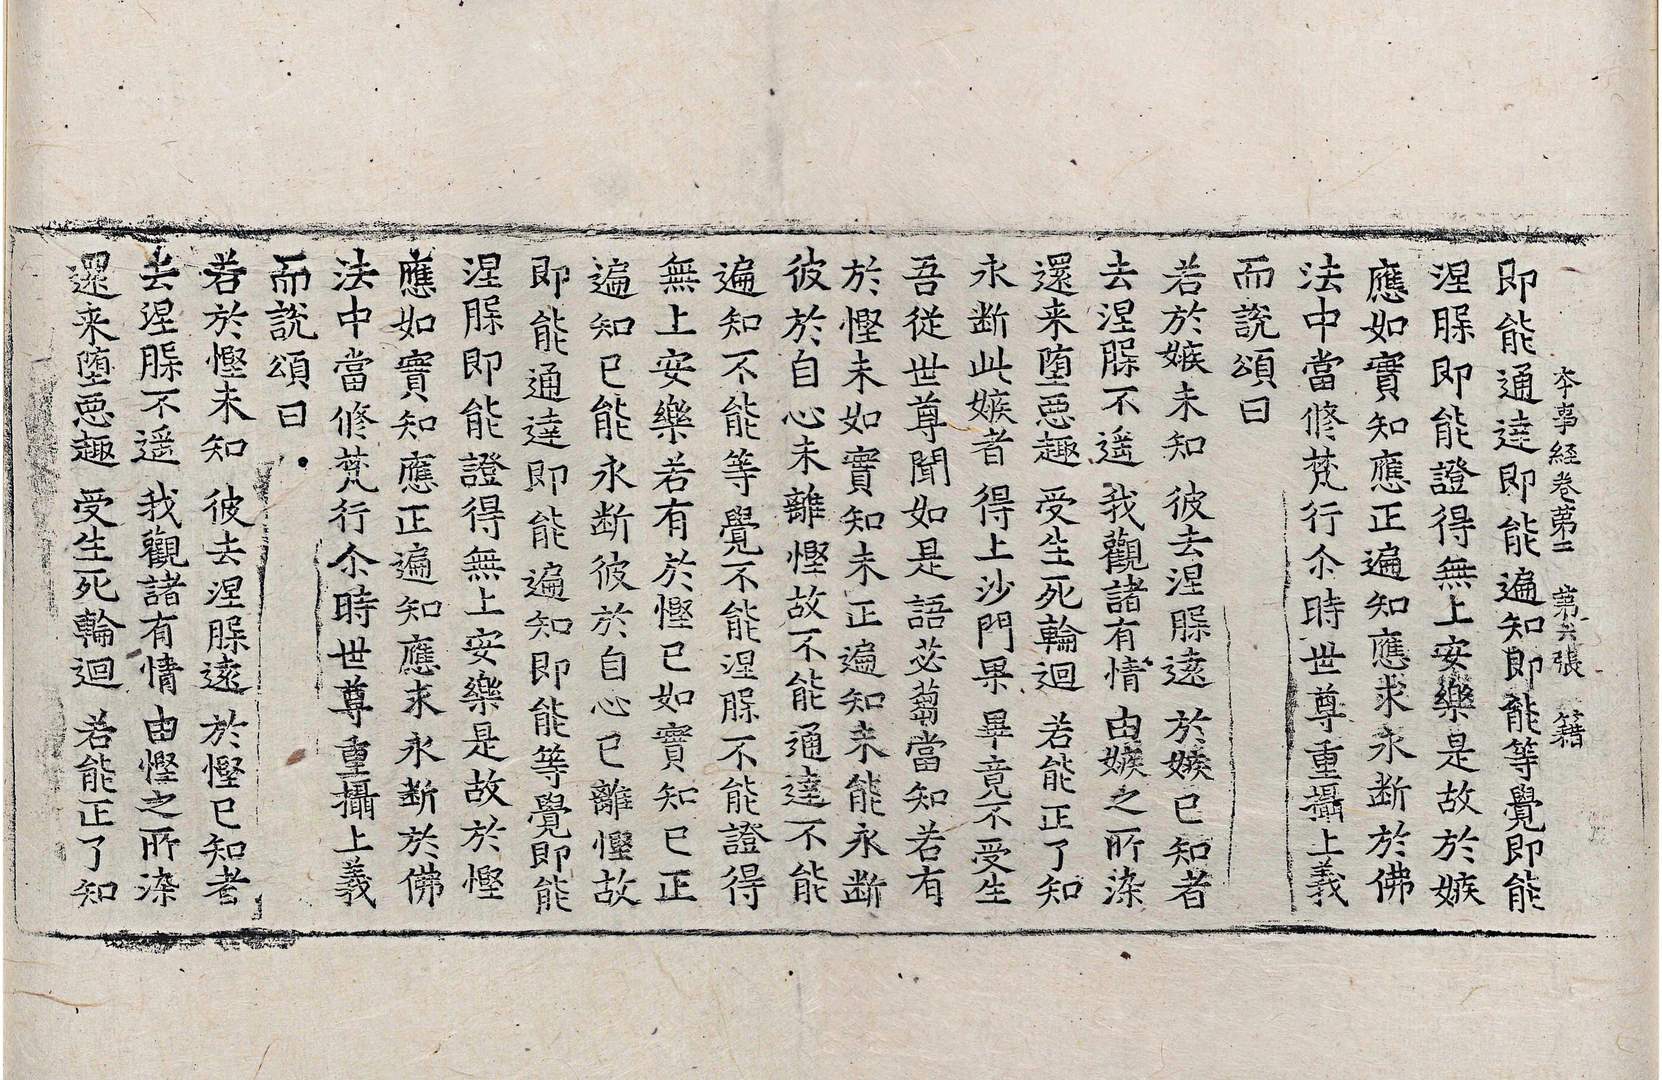 本事経卷苐二 第六張 籍
即能通達即能遍知即能等覺即能
涅槃即能證得無上安樂是故於嫉
應如實知應正遍知應求永断於佛
法中當修梵行尒時世尊重攝上義
而說頌曰
若於嫉未知 彼去涅槃遠 於嫉已知者
去涅槃不遥 我觀諸有情 由嫉之所染
還来墮惡趣 受生死輪迴 若能正了知
永断此嫉者 得上沙門果 畢竟不受生
吾從世尊聞如是語苾蒭當知若有
於慳未如實知未正遍知未能永断
彼於自心未離慳故不能通達不能
遍知不能等覺不能涅槃不能證得
無上安樂若有於慳已如實知已正
遍知已能永断彼於自心已離慳故
即能通達即能遍知即能等覺即能
涅槃即能證得無上安樂是故於慳
應如實知應正遍知應求永断於佛
法中當修梵行尒時世尊重攝上義
而說頌曰
若於慳未知 彼去涅槃遠 於慳已知者
去涅槃不遥 我觀諸有情 由慳之所染
還来墮惡趣 受生死輪迴 若能正了知